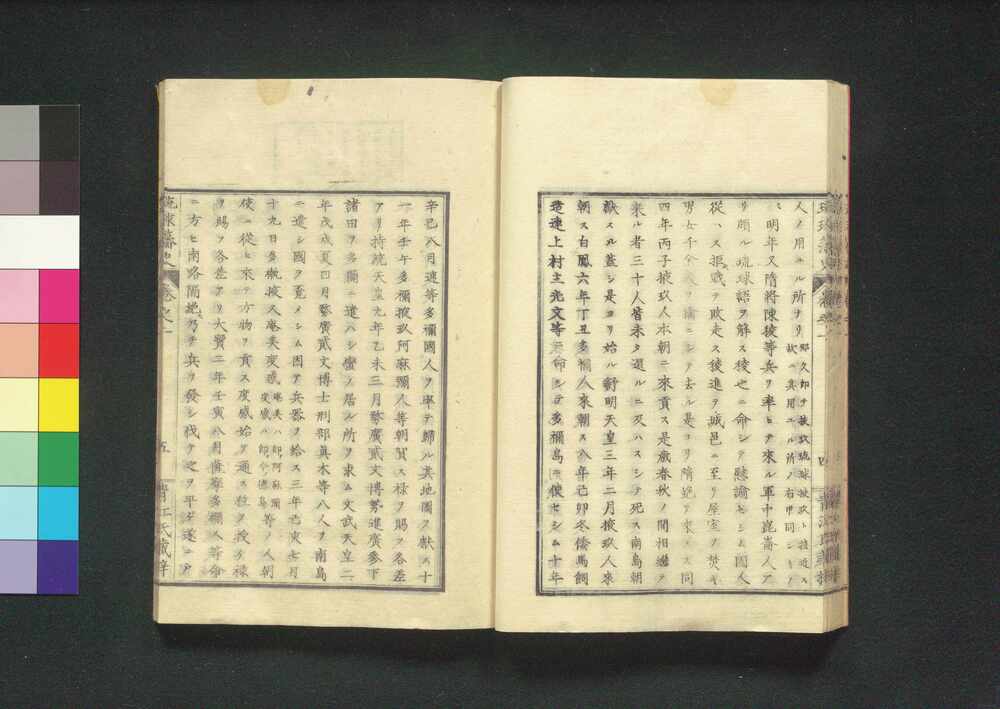 人ノ用ユル所ナリ
明年又隋将陳稜等兵ヲ率ヒテ來ル軍中崑崙人ア
リ頗ル琉球語ヲ解ス稜也ニ命シテ慰諭セシム國人
從ハス拒戰シテ敗走ス稜進テ城邑ニ至リ屋室ヲ焚キ
男女千余ヲ擒ニシテ去ル是ヨリ隋兵
四年丙子掖玖人本朝ニ來貢ス是歳春秋ノ間相繼テ
來ル者三十人皆未タ還ルニ及ハスシテ死ス南島朝
獻スル蓋シ是ヨリ始ル舒明天皇三年二月掖玖人來
朝ス白鳳六年丁丑多禰人來朝ス八年己卯冬倭馬飼
造連上村主光文等ニ命シテ多禰島ニ使セシム十年
四
辛巳八月連等多禰國人ヲ率テ歸ル其地圖ヲ獻ス十
一年壬午多禰掖玖阿麻彌人等朝貢ス禄ヲ賜フ各差
アリ持統天皇九年乙未三月務廣貳文博勢進廣參下
諸田ヲ多禰ニ遣ハシ蠻ノ居ル所ヲ求ム文武天皇二
年戊戌夏四月務廣貳文博士刑部真木等八人ヲ南島
ニ遣シ國ヲ覓メシム因テ兵器ヲ給ス三年己亥七月
十九日多禰掖久奄美度感等ノ人朝
使ニ從ヒ來テ方物ヲ貢ス度感始テ通ス位ヲ授ケ禄
ヲ賜フ各差アリ大寶二年壬寅八月薩摩多禰人等命
ニ方ヒ南路隔絶乃チ兵ヲ發シ伐テ之ヲ平ケ遂ニ
琉球藩史 巻之一
五
青江氏藏梓